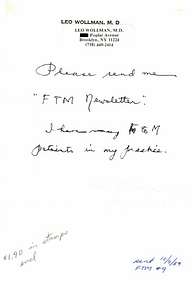 LEO WOLLMAN, M. D.
LEO WOLLMAN, M.D.
Poplar Avenue
Brooklyn, NY 11224
(718) 449-2414
Please send me
"FTM Newsletter".
I have many F to M
patients in my practice.
$1.90 in stamps
encl
sent 10/9/89
FTM #9